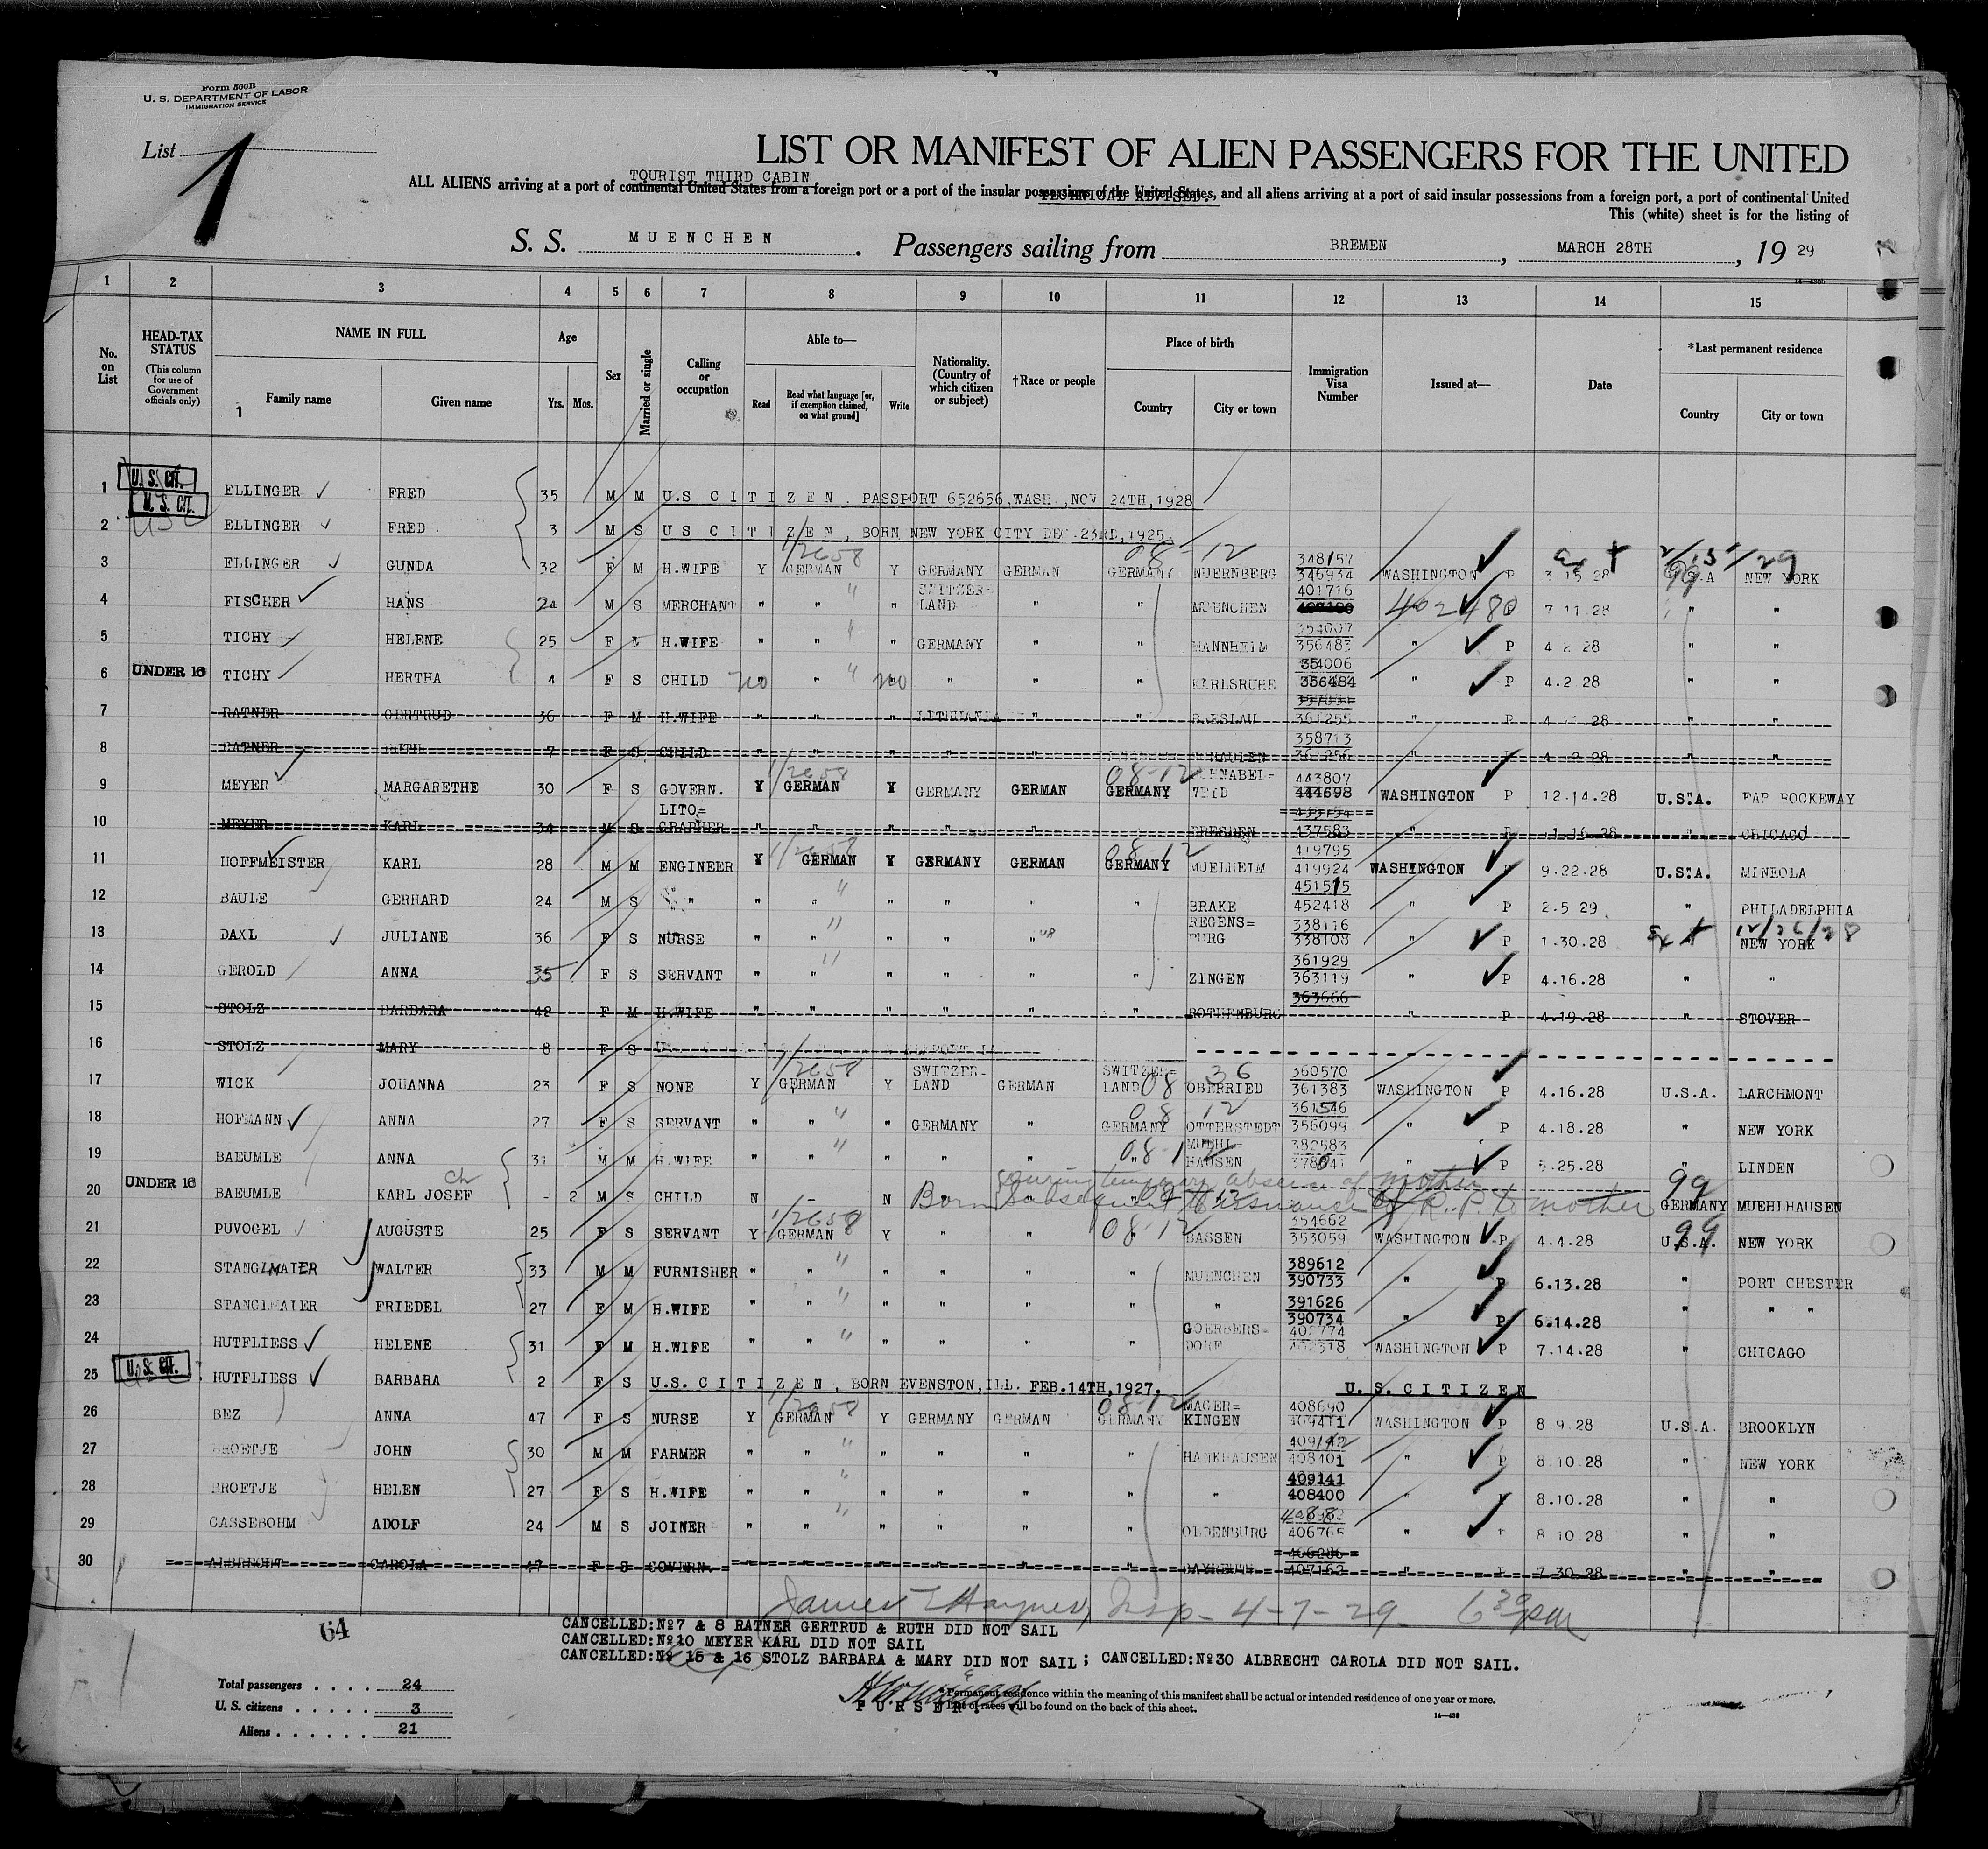 Form 500B
U. S. DEPARTMENT OF LABOR
IMMIGRATION SERVICE
List 1
LIST OR MANIFEST OF ALIEN PASSENGERS FOR THE UNITED
TOURIST THIRD CABIN
ALL ALIENS arriving at a port of continental United States from a foreign port or a port of the insular possessions of the United States, and all aliens arriving at a port of said insular possessions from a foreign port, a port of continental United
This (white) sheet is for the listing of
S. S. MUENCHEN. Passengers sailing from BREMEN, MARCH 28TH, 19 29
1 2 3 4 5 6 7 8 9 10 11 12 13 14 15
No. on List
HEAD-TAX STATUS (This column for use of Government officials only)
NAME IN FULL Family name Given name
Age Yrs. Mos.
Sex
Married or single
Calling or occupation
Able to— Read Read what language [or, if exemption claimed, on what ground] Write
Nationality. (Country of which citizen or subject)
†Race or people
Place of birth Country City or town
Immigration Visa Number
Issued at—
Date
*Last permanent residence Country City or town
1 U. S. CIT. ELLINGER FRED 35 M M U.S CITIZEN. PASSPORT 652656, WASH., NOV 24TH, 1928
2 U. S. CIT. ELLINGER FRED 3 M S US CITIZEN, BORN NEW YORK CITY DEC.23RD, 1925
3 ELLINGER GUNDA 32 F M H.WIFE Y GERMAN Y GERMANY GERMAN GERMANY NUERNBERG 348157 346934 WASHINGTON P 3 15 28 U.S.A NEW YORK
4 FISCHER HANS 24 M S MERCHANT " " " SWITZER-LAND " " MUENCHEN 401716 402480 7 11.28 " "
5 TICHY HELENE 25 F M H.WIFE " " " GERMANY " " MANNHEIM 354007 356483 " P 4 2 28 " "
6 UNDER 16 TICHY HERTHA 4 F S CHILD no " no " " " KARLSRUHE 354006 356484 " P 4.2 28 " "
7 RATNER GERTRUD 36 F M H.WIFE " " " LITHUANIA " " 361255 " P 28 " "
8 RATNER RUTH 7 F S CHILD " " " " " 358713 " 28 " "
9 MEYER MARGARETHE 30 F S GOVERN. Y GERMAN Y GERMANY GERMAN GERMANY 443807 444698 WASHINGTON P 12.14.28 U.S.A. FAR ROCKEWAY
10 MEYER KARL 34 M S LITO=GRAPHER " " " " " " DRESDEN 437583 " P 11.16.28 " CHICAGO
11 HOFFMEISTER KARL 28 M M ENGINEER Y GERMAN Y GERMANY GERMAN GERMANY MUELHEIM 419795 419924 WASHINGTON P 9.22.28 U.S.A. MINEOLA
12 BAULE GERHARD 24 M S " " " " " " BRAKE 451515 452418 " P 2.5 29. " PHILADELPHIA
13 DAXL JULIANE 36 F S NURSE " " " " " REGENS=BURG 338116 338108 " P 1.30.28 Ext 12/26/28 NEW YORK
14 GEROLD ANNA 35 F S SERVANT " " " " " " ZINGEN 361929 363119 " P 4.16.28 " "
15 STOLZ BARBARA 42 F M H.WIFE " " " " " " ROTHENBURG 363666 " P 4.19.28 " STOVER
16 STOLZ MARY 8 F S
17 WICK JOHANNA 23 F S NONE Y GERMAN Y SWITZER-LAND GERMAN SWITZER=LAND OBERRIED 360570 361383 WASHINGTON P 4.16.28 U.S.A. LARCHMONT
18 HOFMANN ANNA 27 F S SERVANT " " " GERMANY " GERMANY OTTERSTEDT 361546 356099 " P 4.18.28 " NEW YORK
19 BAEUMLE ANNA 31 M M H.WIFE " " " " " " MUEHL-HAUSEN 382583 " P 5.25.28 " LINDEN
20 UNDER 16 BAEUMLE KARL JOSEF ch - 2 M S CHILD N - N Born during temporary absence of mother subsequent to issuance of R.P. to mother GERMANY MUEHLHAUSEN
21 PUVOGEL AUGUSTE 25 F S SERVANT Y GERMAN Y " " " BASSEN 354662 353059 WASHINGTON P 4.4.28 U.S.A. NEW YORK
22 STANGLMAIER WALTER 33 M M FURNISHER " " " " " " MUENCHEN 389612 390733 " P 6.13.28 " PORT CHESTER
23 STANGLMAIER FRIEDEL 27 F M H.WIFE " " " " " " " 391626 390734 " P 6.14.28 " " "
24 HUTFLIESS HELENE 31 F M H.WIFE " " " " " " GOERBERS=DORF WASHINGTON P 7.14.28 " CHICAGO
25 U. S. CIT. HUTFLIESS BARBARA 2 F S U.S. CITIZEN, BORN EVENSTON, ILL. FEB.14TH, 1927. U.S. CITIZEN
26 BEZ ANNA 47 F S NURSE Y GERMAN Y GERMANY GERMAN GERMANY MAGER=KINGEN 408690 409411 WASHINGTON P 8 9.28 U.S.A. BROOKLYN
27 BROETJE JOHN 30 M M FARMER " " " " " " HANKHAUSEN 409142 408401 " P 8.10.28 " NEW YORK
28 BROETJE HELEN 27 F S H.WIFE " " " " " " " 409141 408400 " P 8.10.28 " "
29 CASSEBOHM ADOLF 24 M S JOINER " " " " " " OLDENBURG 406765 " P 8 10.28 " "
30 ALBRECHT CAROLA 47 F S GOVERN. " " " " " " BAYREUTH 406286 407162 " P 7.30.28 " "
James T Haynes, Insp - 4-7-29 - 6 30 pm
64
CANCELLED:No7 & 8 RATNER GERTRUD & RUTH DID NOT SAIL
CANCELLED:No10 MEYER KARL DID NOT SAIL
CANCELLED:No 15 & 16 STOLZ BARBARA & MARY DID NOT SAIL; CANCELLED:No30 ALBRECHT CAROLA DID NOT SAIL.
Total passengers . . . . 24
U. S. citizens . . . . . 3
Aliens . . . . . . 21
PURSER
* Permanent residence within the meaning of this manifest shall be actual or intended residence of one year or more.
† List of races will be found on the back of this sheet.
14—438